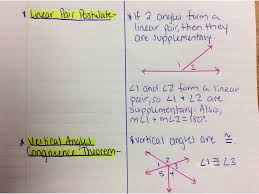 * Linear Pair Postulate-
* If 2 angles form a
linear pair, then they
are supplementary.
1 2
∠1 and ∠2 form a linear
pair, so ∠1 + ∠2 are
supplementary. Also,
m∠1 + m∠2 = 180°
* Vertical Angles
Congruence Theorem-
* Vertical angles are ≅
1 2 3
5 4
∠1 ≅ ∠3